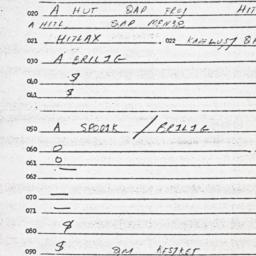 020 A HUT SAP FROJ HIT
A HITL SAP MENSO
021 HITLAX . 022
030 A ERILIG
040 $
061 $
050 A SPODIK / ERILIG
060 O
061 O
062 —
070 —
071 —
080 $
090 $ SM KESTKET